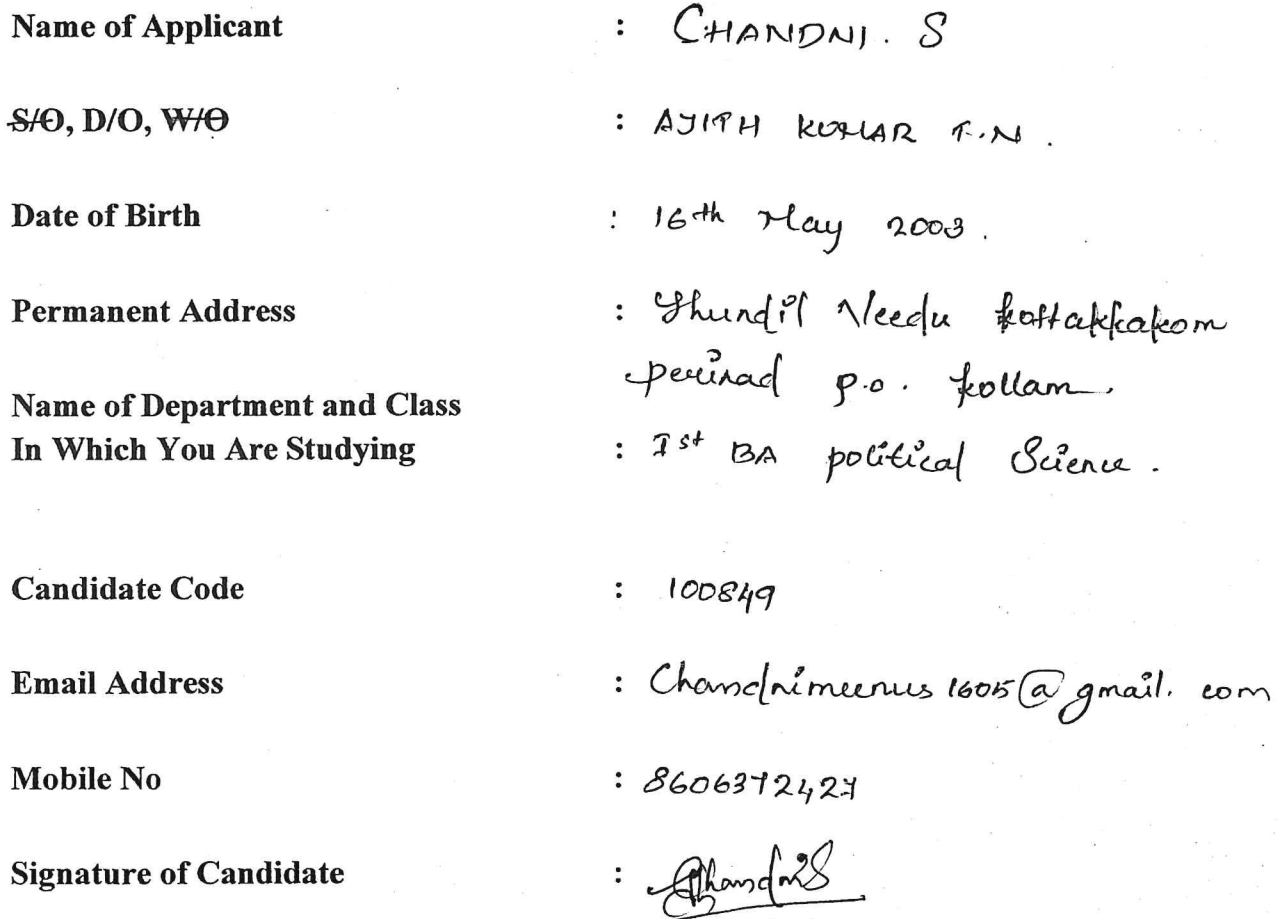 Name of Applicant : CHANDNI. S
S/O, D/O, W/O : AJITH KUMAR T.N.
Date of Birth : 16th May 2003.
Permanent Address : Thundil Veedu kottakkakom
perinad p.o. kollam.
Name of Department and Class
In Which You Are Studying : Ist BA political Science.
Candidate Code : 100849
Email Address : Chandnimeenus1605@gmail.com
Mobile No : 8606372427
Signature of Candidate : Chandni S